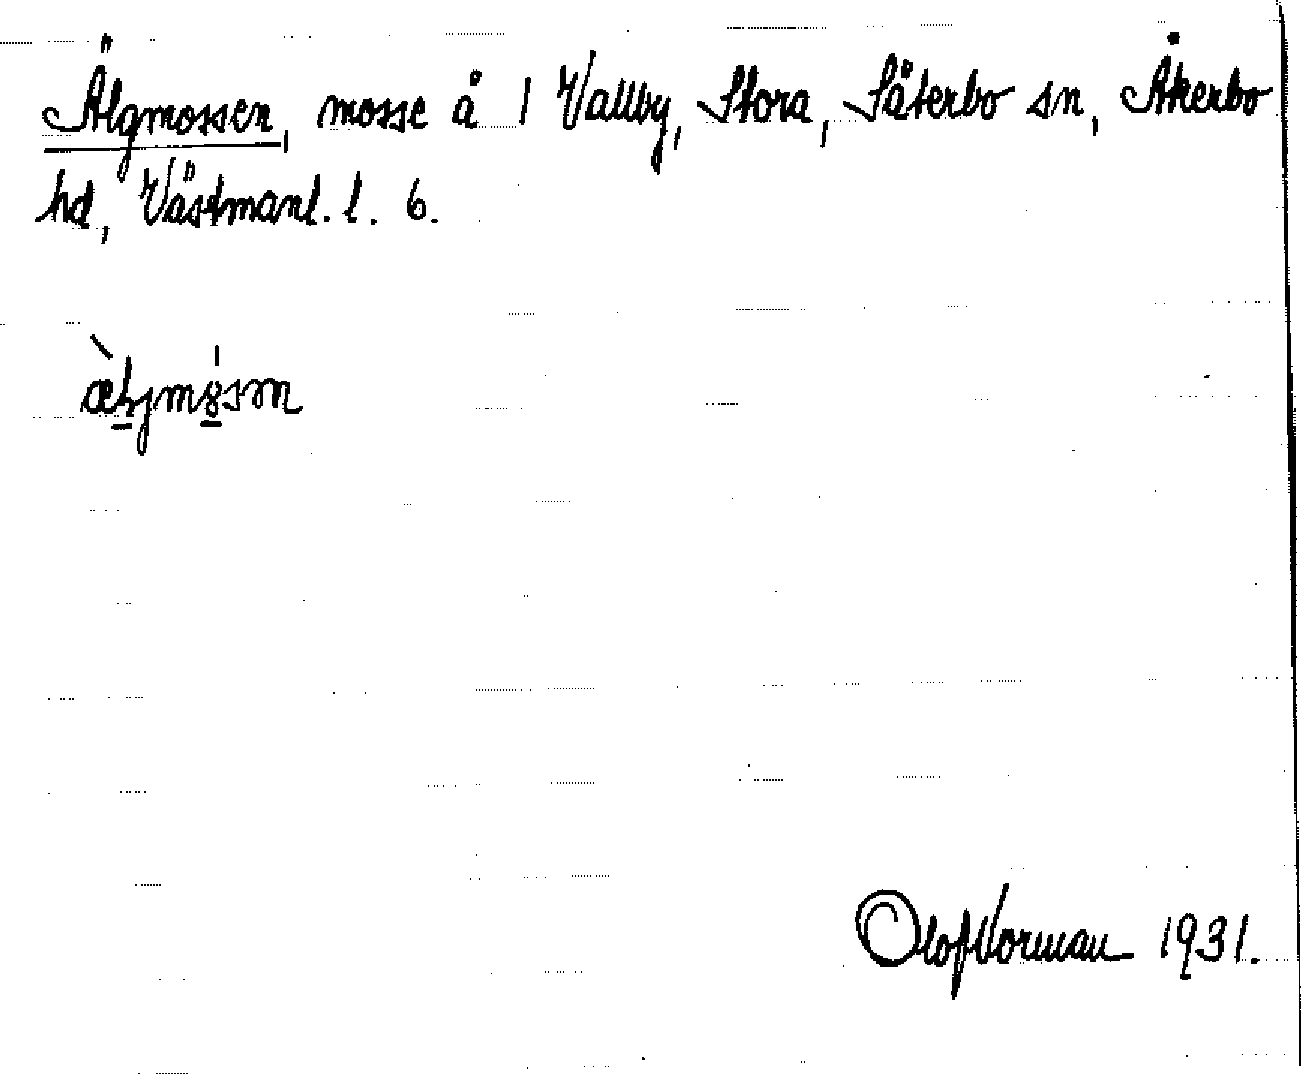 Älgmossen, mosse å 1 Vallby, Stora, Säterbo sn, Åkerbo
hd, Västmanl. l. 6.
Olof Vorman 1931.